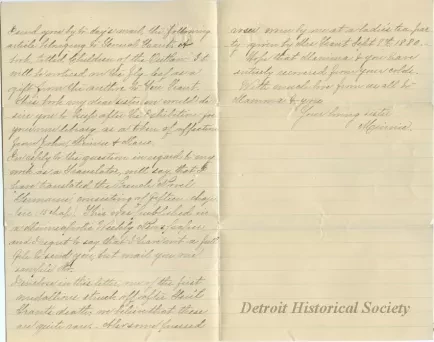 I send you by to day's mail, the following
article belonging to General Grant. A
book titled Children of the Outlaw. It
will be noticed on the fly leaf as a
gift from the author to Gen Grant.
This book my dear sister, we would de-
sire you to keep after the Exhibition for
your own library, as a token of affection
from John, Minnie &
In reply to the question in regard to my
work as a Translator, will say, that I
have translated the French Novel
Germaine, consisting of fifteen chap-
ters. This was published in
a Minneapolis Weekly News paper,
and I regret to say that I have not a full
file to send you, but mail you one
sample
I enclose in this letter, one of the first
medallions struck off after Genl
Grants death, we believe that these
are quite rare. Also some pressed
given by me at a ladies tea par-
ty given by Mrs Grant Sept 8th 1880.
Hope that Mamma & you have
entirely recovered from your colds.
With much love from us all to
Mamma & you
Your loving sister
Minnie
Detroit Historical Society